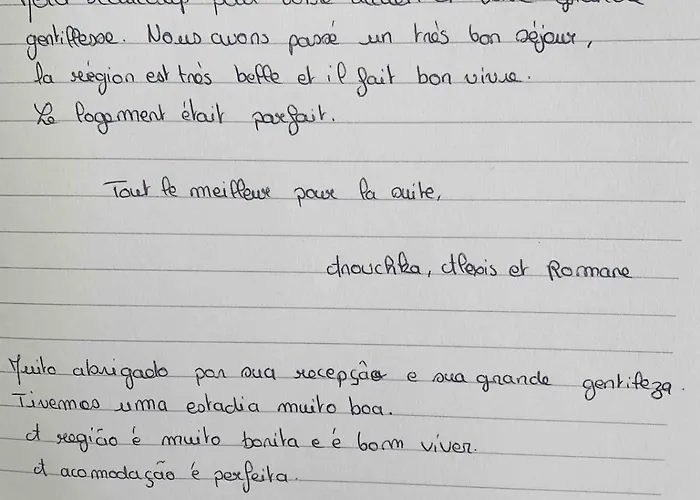 beaucoup pour votre accueil et votre grande
gentillesse. Nous avons passé un très bon séjour,
la région est très belle et il fait bon vivre.
Le logement était parfait.
Tout le meilleur pour la suite,
Anouchka, Alexis et Romane
Muito abrigado por sua recepção e sua grande gentileza.
Tivemos uma estadia muito boa.
A região é muito bonita e é bom viver.
A acomodação é perfeita.